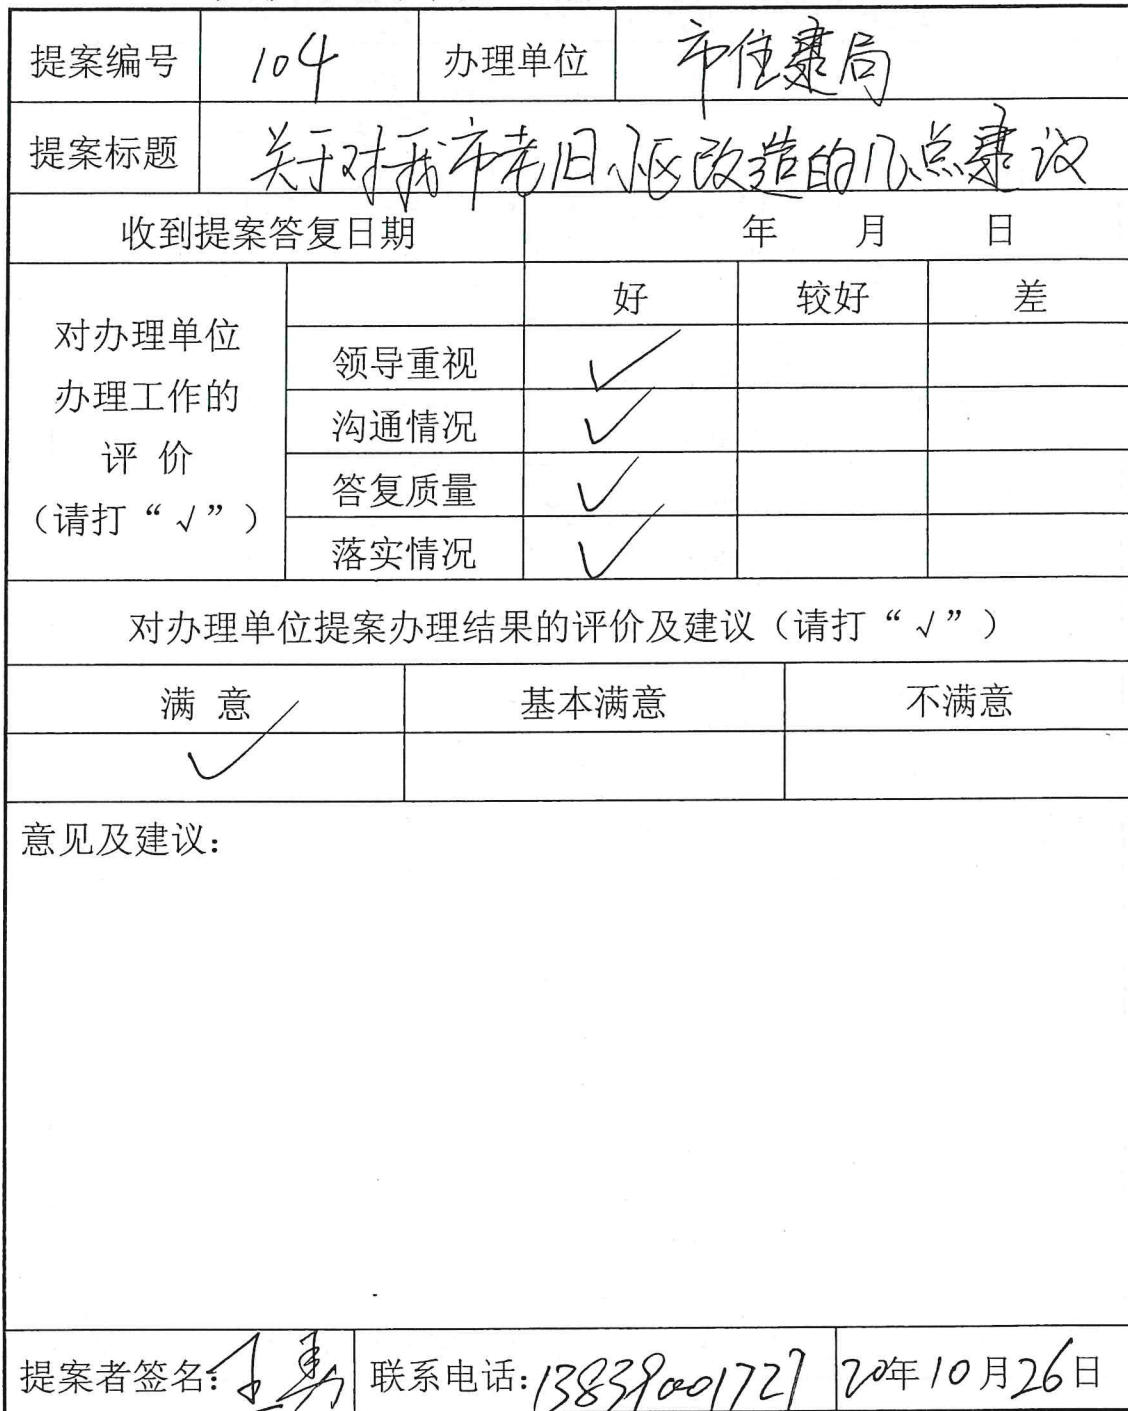 提案编号 104 办理单位 市住建局
提案标题 关于对我市老旧小区改造的几点建议
收到提案答复日期 年 月 日
好 较好 差
对办理单位
办理工作的
评 价
（请打“√”）
领导重视 ✓
沟通情况 ✓
答复质量 ✓
落实情况 ✓
对办理单位提案办理结果的评价及建议（请打“√”）
满 意 基本满意 不满意
✓
意见及建议：
提案者签名： 联系电话：13839001727 20年10月26日